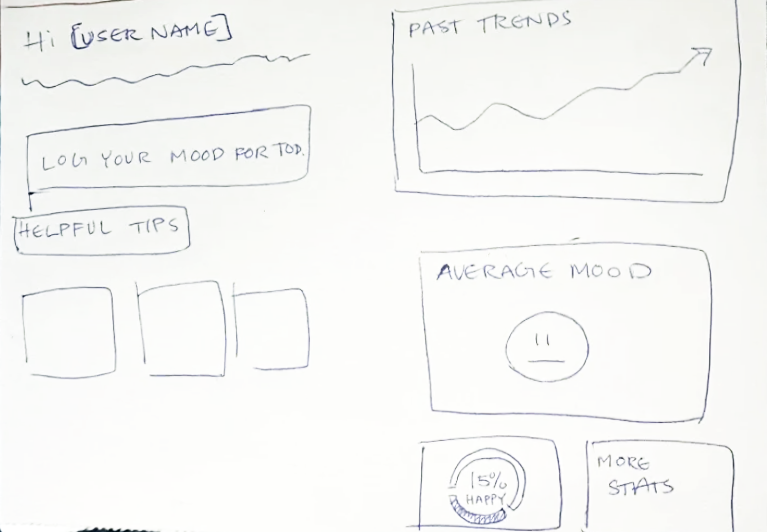 Hi [USER NAME]
LOG YOUR MOOD FOR TOD.
HELPFUL TIPS
PAST TRENDS
AVERAGE MOOD
15%
HAPPY
MORE
STATS